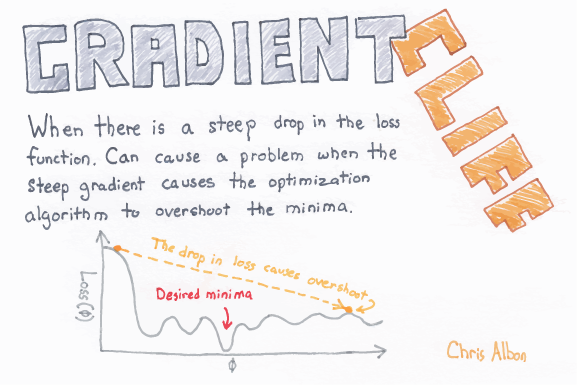 GRADIENT CLIFF
When there is a steep drop in the loss
function. Can cause a problem when the
steep gradient causes the optimization
algorithm to overshoot the minima.
The drop in loss causes overshoot
Desired minima
Loss(ϕ)
ϕ
Chris Albon